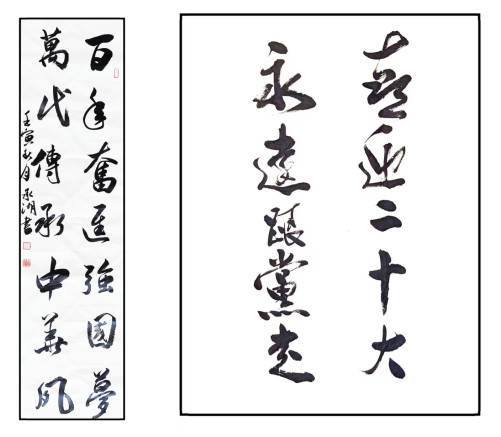 百年奮進強國夢
萬代傳承中華風
壬寅秋月承湖書
喜迎二十大
永遠跟黨走